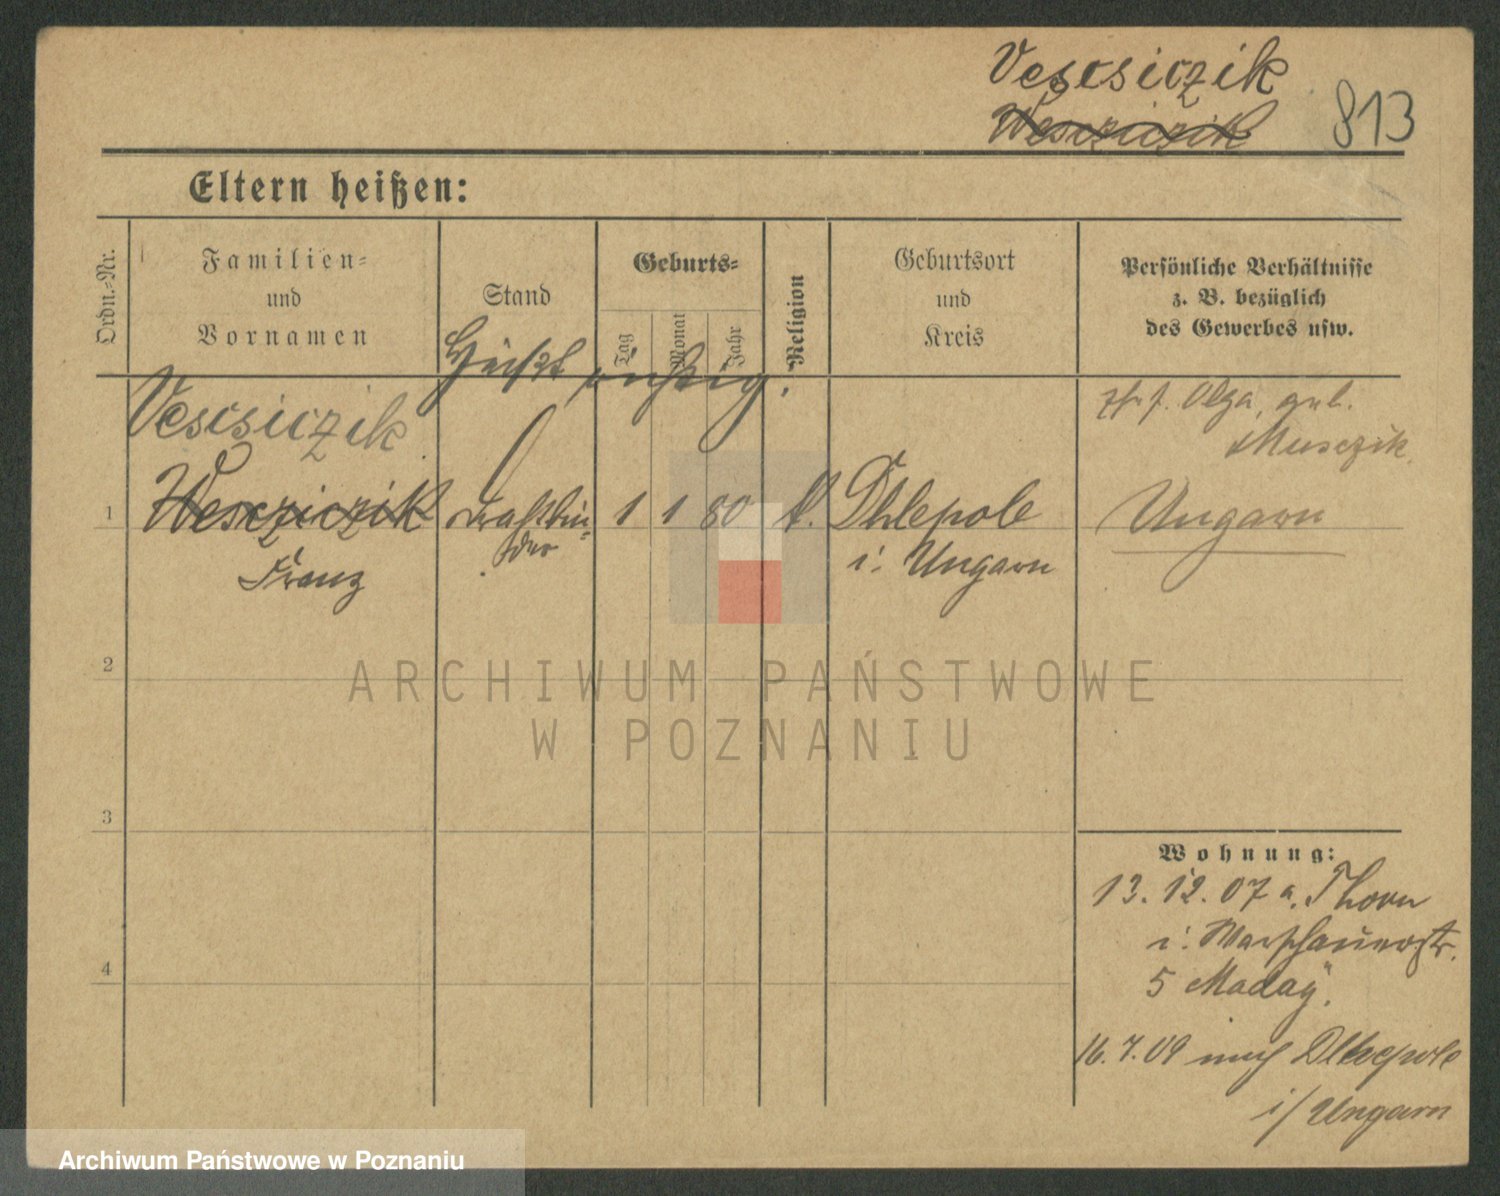 Vescsiczik
Wescziczik
813
Eltern heißen:
Ordn.-Nr.
Familien-
und
Vornamen
Stand
Geburts-
Tag
Monat
Jahr
Religion
Geburtsort
und
Kreis
Persönliche Verhältnisse
z. B. bezüglich
des Gewerbes usw.
Vescsiczik
Olga, geb.
Musczik
1
Wescziczik
Franz
Drahtbin-
der
1 1 80
k.
Dhlepole
i. Ungarn
Ungarn
2
3
4
Wohnung:
13. 12. 07 a. Thorn
i. Warschauerstr.
5 Maday.
16. 7. 09 nach Dlhepole
i/Ungarn
ARCHIWUM PAŃSTWOWE
W POZNANIU
Archiwum Państwowe w Poznaniu